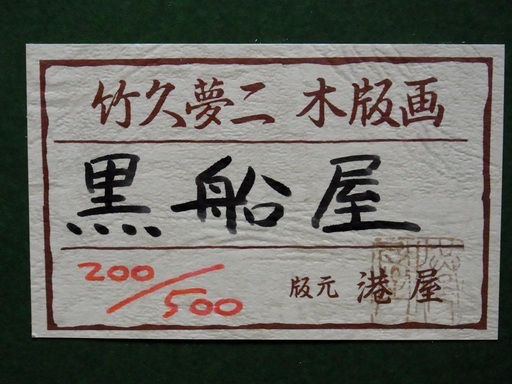 竹久夢二 木版画
黒船屋
200/500
版元 港屋